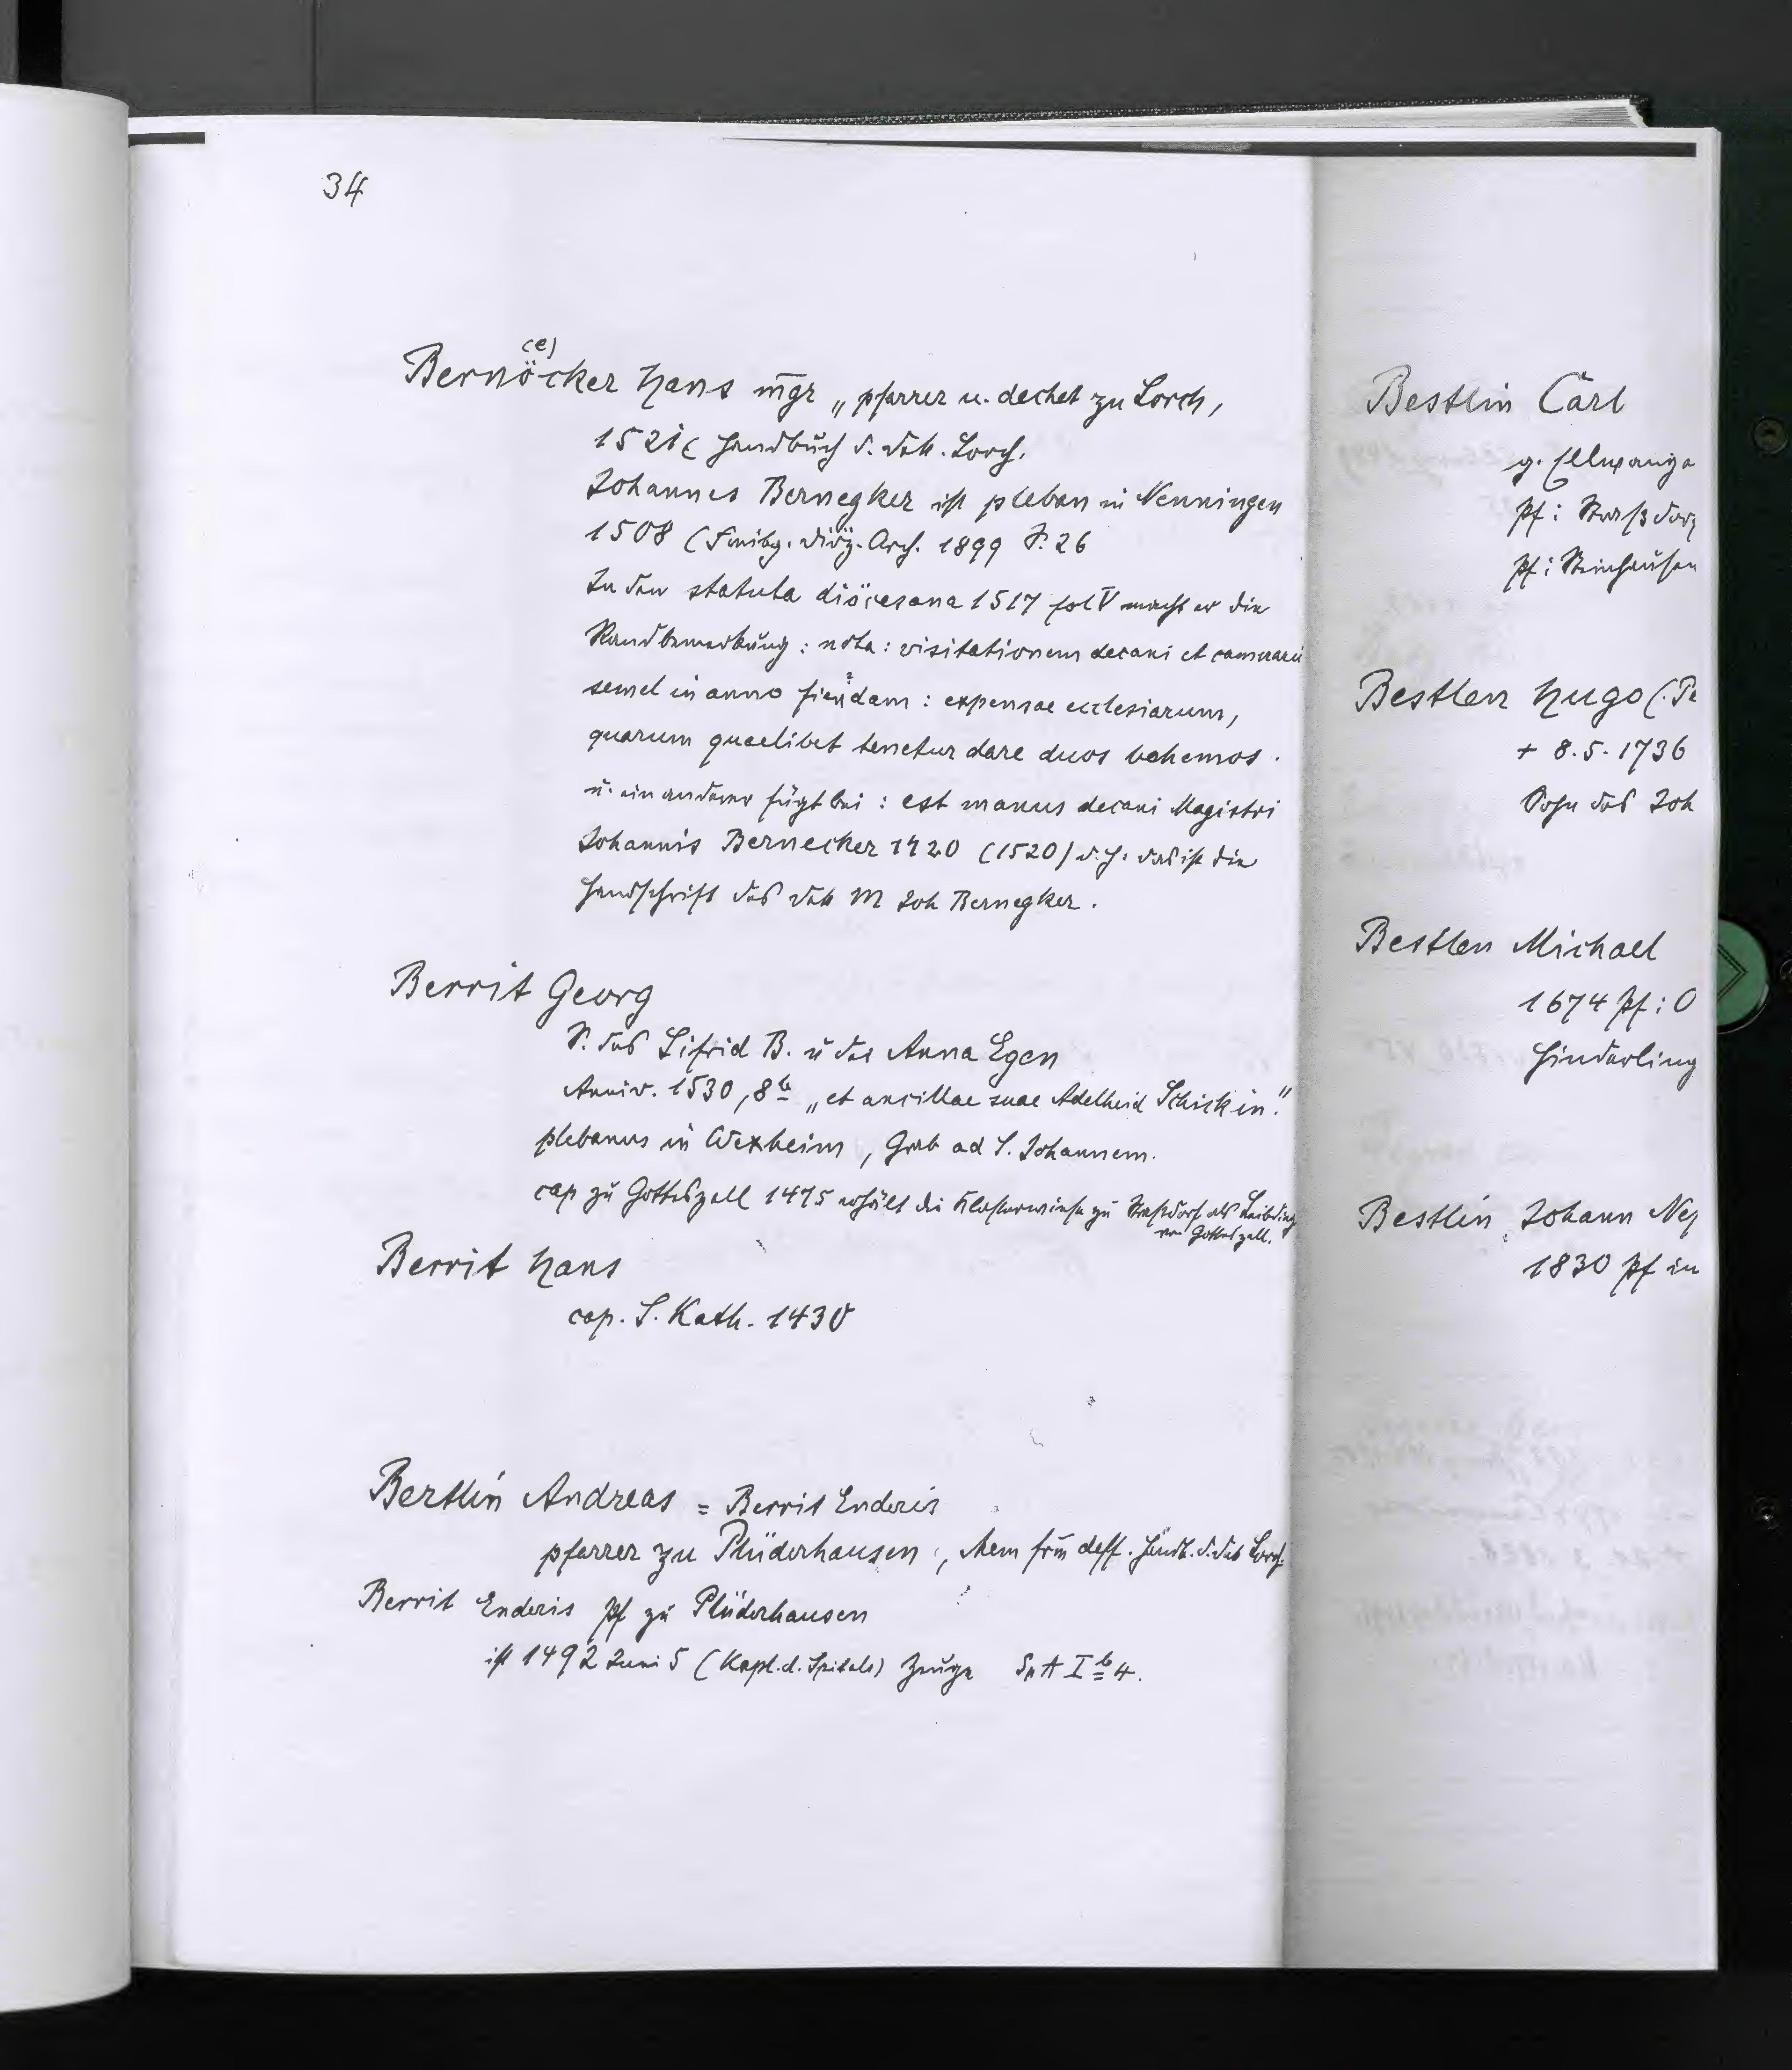 34
(e)
Bernöcker Hans mgr „pfarrer u. dechet zu Lorch,
1521 ( Handbuch d. Dek. Lorch.
Johannes Bernegker ist pleban in Nenningen
1508 (Freibg. Diöz. Arch. 1899 S. 26
In den statuta diöcesana 1517 fol V macht er die
Randbemerkung : nota : visitationem decani et camerarii
semel in anno fiendam : expensae ecclesiarum,
quarum quaelibet tenetur dare duos bohemos .
u. ein anderer fügt bei : est manus decani Magistri
Johannis Bernecker 1420 (1520) d. h. das ist die
Handschrift des Dek M Joh Bernegker .
Berrit Georg
S. des Sifrid B. u der Anna Egen
Anniv. 1530, 8 b „et ancillae suae Adelheid Schickin".
plebanus in Wexheim , Grab ad S. Johannem.
cap zu Gotteszell 1475 erhält die Klosterwiese zu Straßdorf als Leibding
von Gotteszell.
Berrit Hans
cap. S. Kath. 1430
Bertlin Andreas = Berrit Enderis
pfarrer zu Plüderhausen , Mem frm deff. Handb. d. Dek Lorch
Berrit Enderis Pf zu Plüderhausen
ist 1492 Juni 5 (Kapl. d. Spitals) Zeuge Sp A I b 4.
Bestlin Carl
g. Ellwange
Pf : Straßdorf
Pf : Steinhausen
Bestlen Hugo (Pe
+ 8.5.1736
Sohn des Joh
Bestlen Michael
1674 Pf : O
Hinderling
Bestlin Johann Nep
1830 Pf in